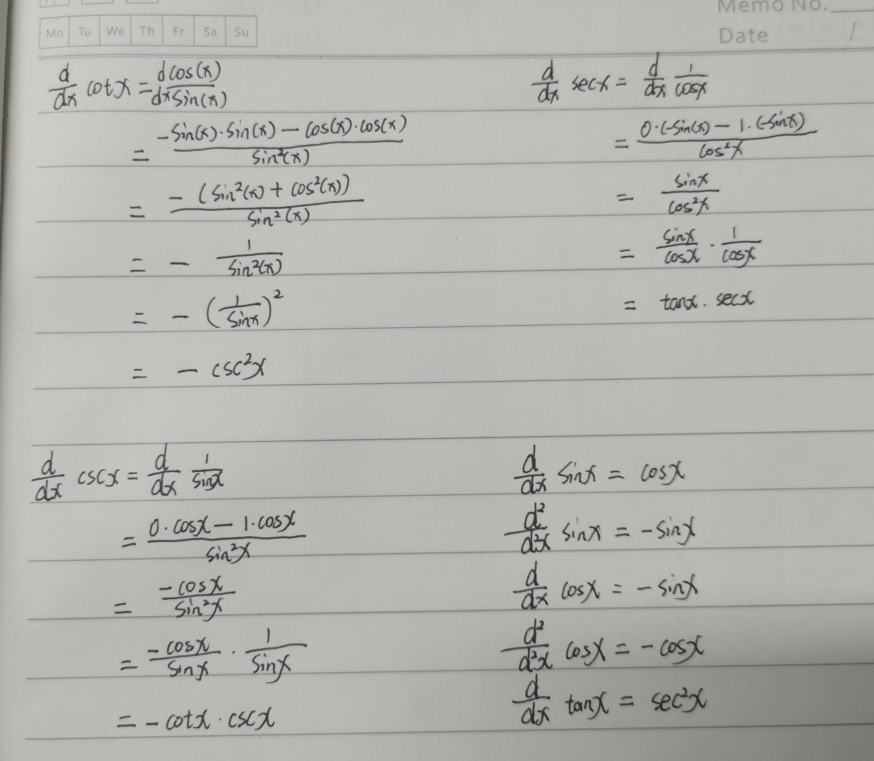 Memo No.
Mo Tu We Th Fr Sa Su
Date /
d/dx cotx = dcos(x)/dxsin(x)
= -sin(x)·sin(x) - cos(x)·cos(x) / sin²(x)
= -(sin²(x) + cos²(x)) / sin²(x)
= - 1/sin²(x)
= - (1/sinx)²
= - csc²x
d/dx secx = d/dx 1/cosx
= 0·(-sin(x) - 1·(-sinx) / cos²x
= sinx/cos²x
= sinx/cosx · 1/cosx
= tanx · secx
d/dx cscx = d/dx 1/sinx
= 0·cosx - 1·cosx / sin²x
= -cosx/sin²x
= -cosx/sinx · 1/sinx
= -cotx · cscx
d/dx sinx = cosx
d²/d²x sinx = -sinx
d/dx cosx = -sinx
d²/d²x cosx = -cosx
d/dx tanx = sec²x